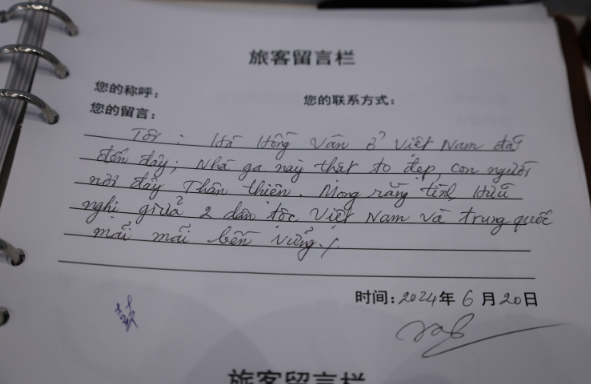 旅客留言栏
您的称呼： 您的联系方式：
您的留言：
Tôi : Hà Hồng Vân ở Việt Nam đã
đến đây; Nhà ga này thật to đẹp, con người
nơi đây Thân thiện. Mong rằng tình hữu
nghị giữa 2 dân tộc Việt Nam và trung quốc
mãi mãi bền vững./.
时间：2024年 6 月 20日
旅客留言栏